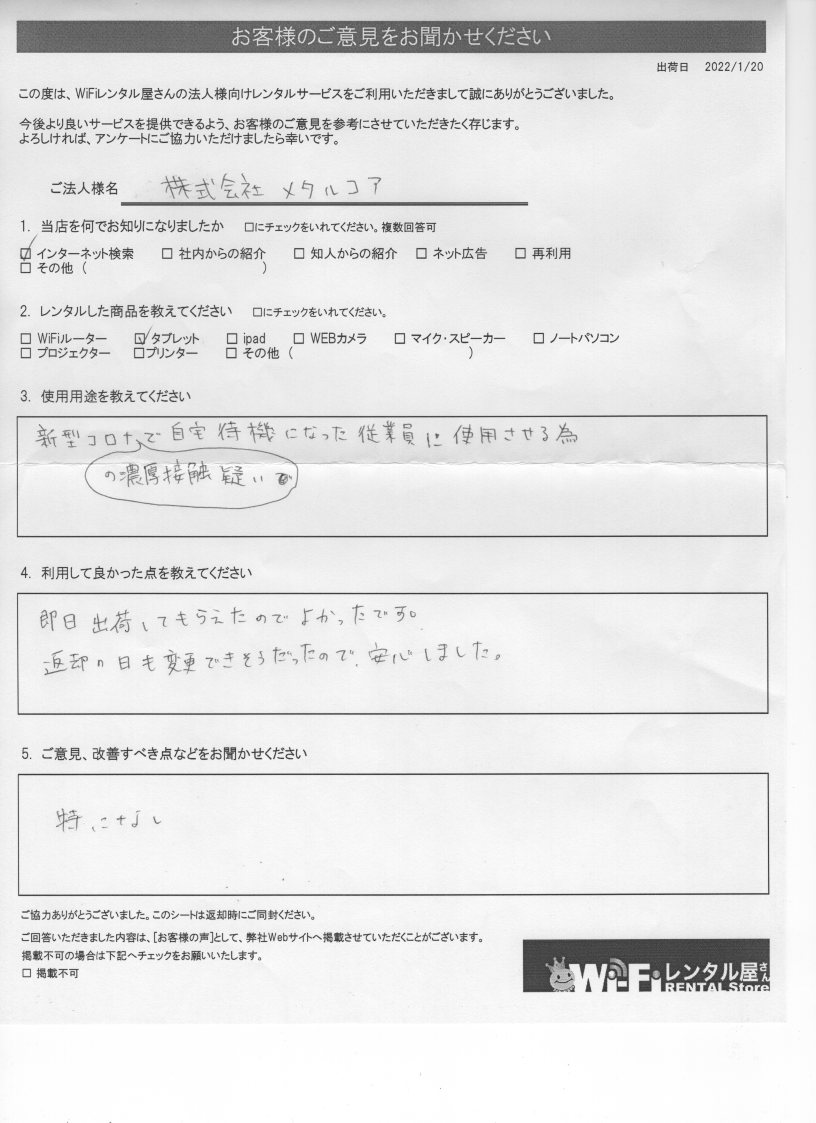 お客様のご意見をお聞かせください
出荷日 2022/1/20
この度は、WiFiレンタル屋さんの法人様向けレンタルサービスをご利用いただきまして誠にありがとうございました。
今後より良いサービスを提供できるよう、お客様のご意見を参考にさせていただきたく存じます。
よろしければ、アンケートにご協力いただけましたら幸いです。
ご法人様名 株式会社 メタルコア
1. 当店を何でお知りになりましたか □にチェックをいれてください。複数回答可
☑ インターネット検索 □ 社内からの紹介 □ 知人からの紹介 □ ネット広告 □ 再利用
□ その他 ( )
2. レンタルした商品を教えてください □にチェックをいれてください。
□ WiFiルーター ☑ タブレット □ ipad □ WEBカメラ □ マイク・スピーカー □ ノートパソコン
□ プロジェクター □プリンター □ その他 ( )
3. 使用用途を教えてください
新型コロナで自宅待機になった従業員に使用させる為
の濃厚接触疑い
4. 利用して良かった点を教えてください
即日出荷してもらえたのでよかったです。
返却の日も変更できそうだったので、安心しました。
5. ご意見、改善すべき点などをお聞かせください
特になし
ご協力ありがとうございました。このシートは返却時にご同封ください。
ご回答いただきました内容は、[お客様の声]として、弊社Webサイトへ掲載させていただくことがございます。
掲載不可の場合は下記へチェックをお願いいたします。
□ 掲載不可
Wi-Fiレンタル屋さん
RENTAL Store